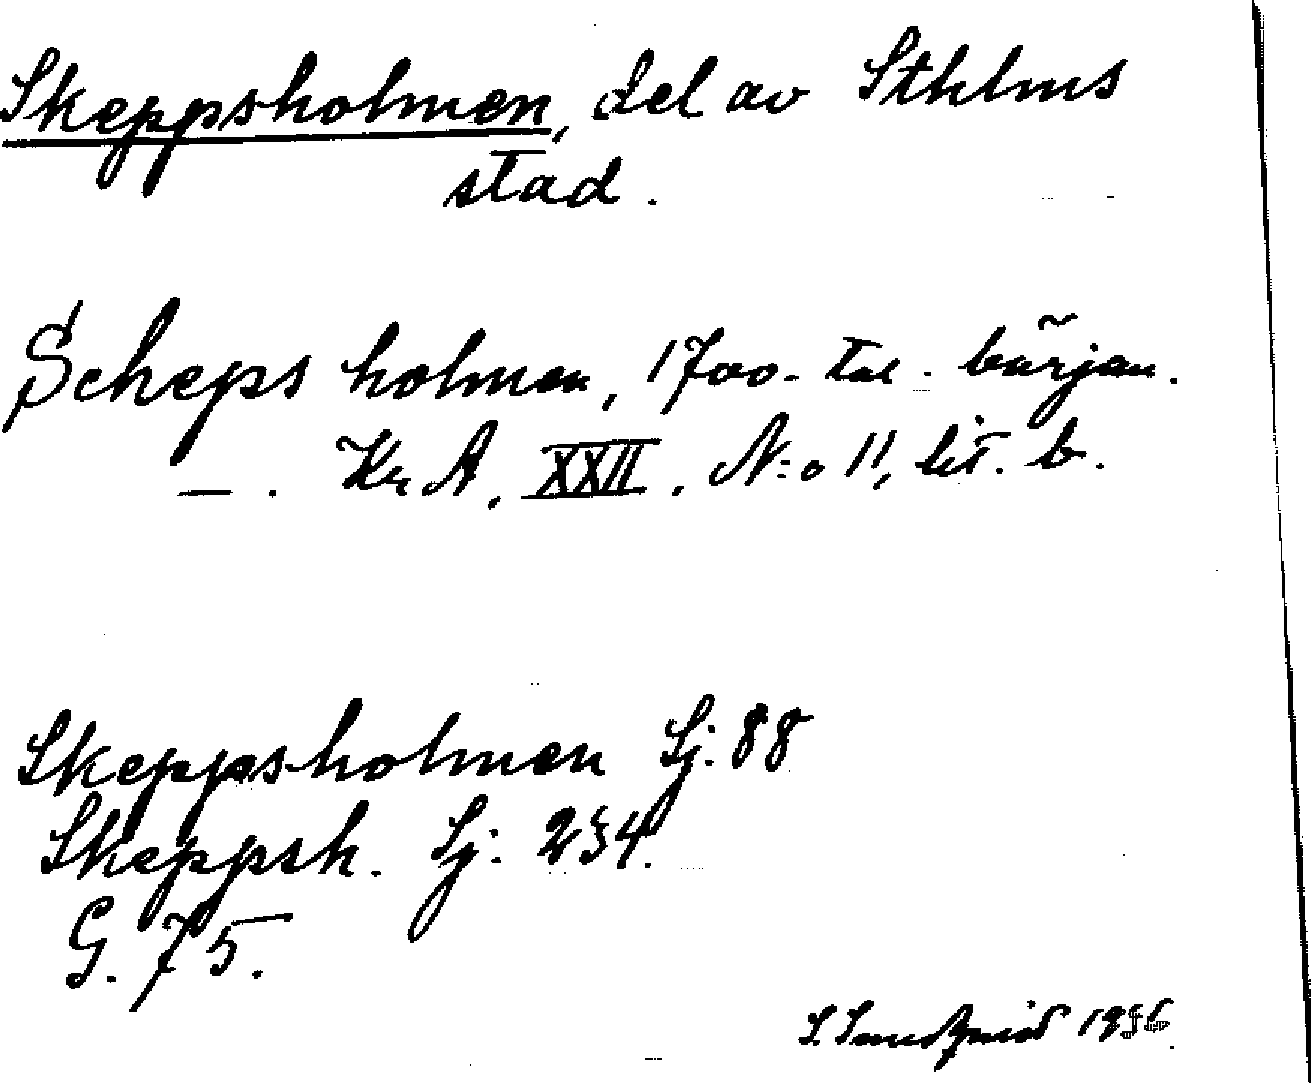 Skeppsholmen, del av Sthlms
stad.
Scheps holmen, 1700-tal. början.
— . Kr. A. XXII. N:o 11, lit. b.
Skeppsholmen Sj. 88
Skeppsh. Sj. 234.
G. 75.
S. Sundqvist 1936